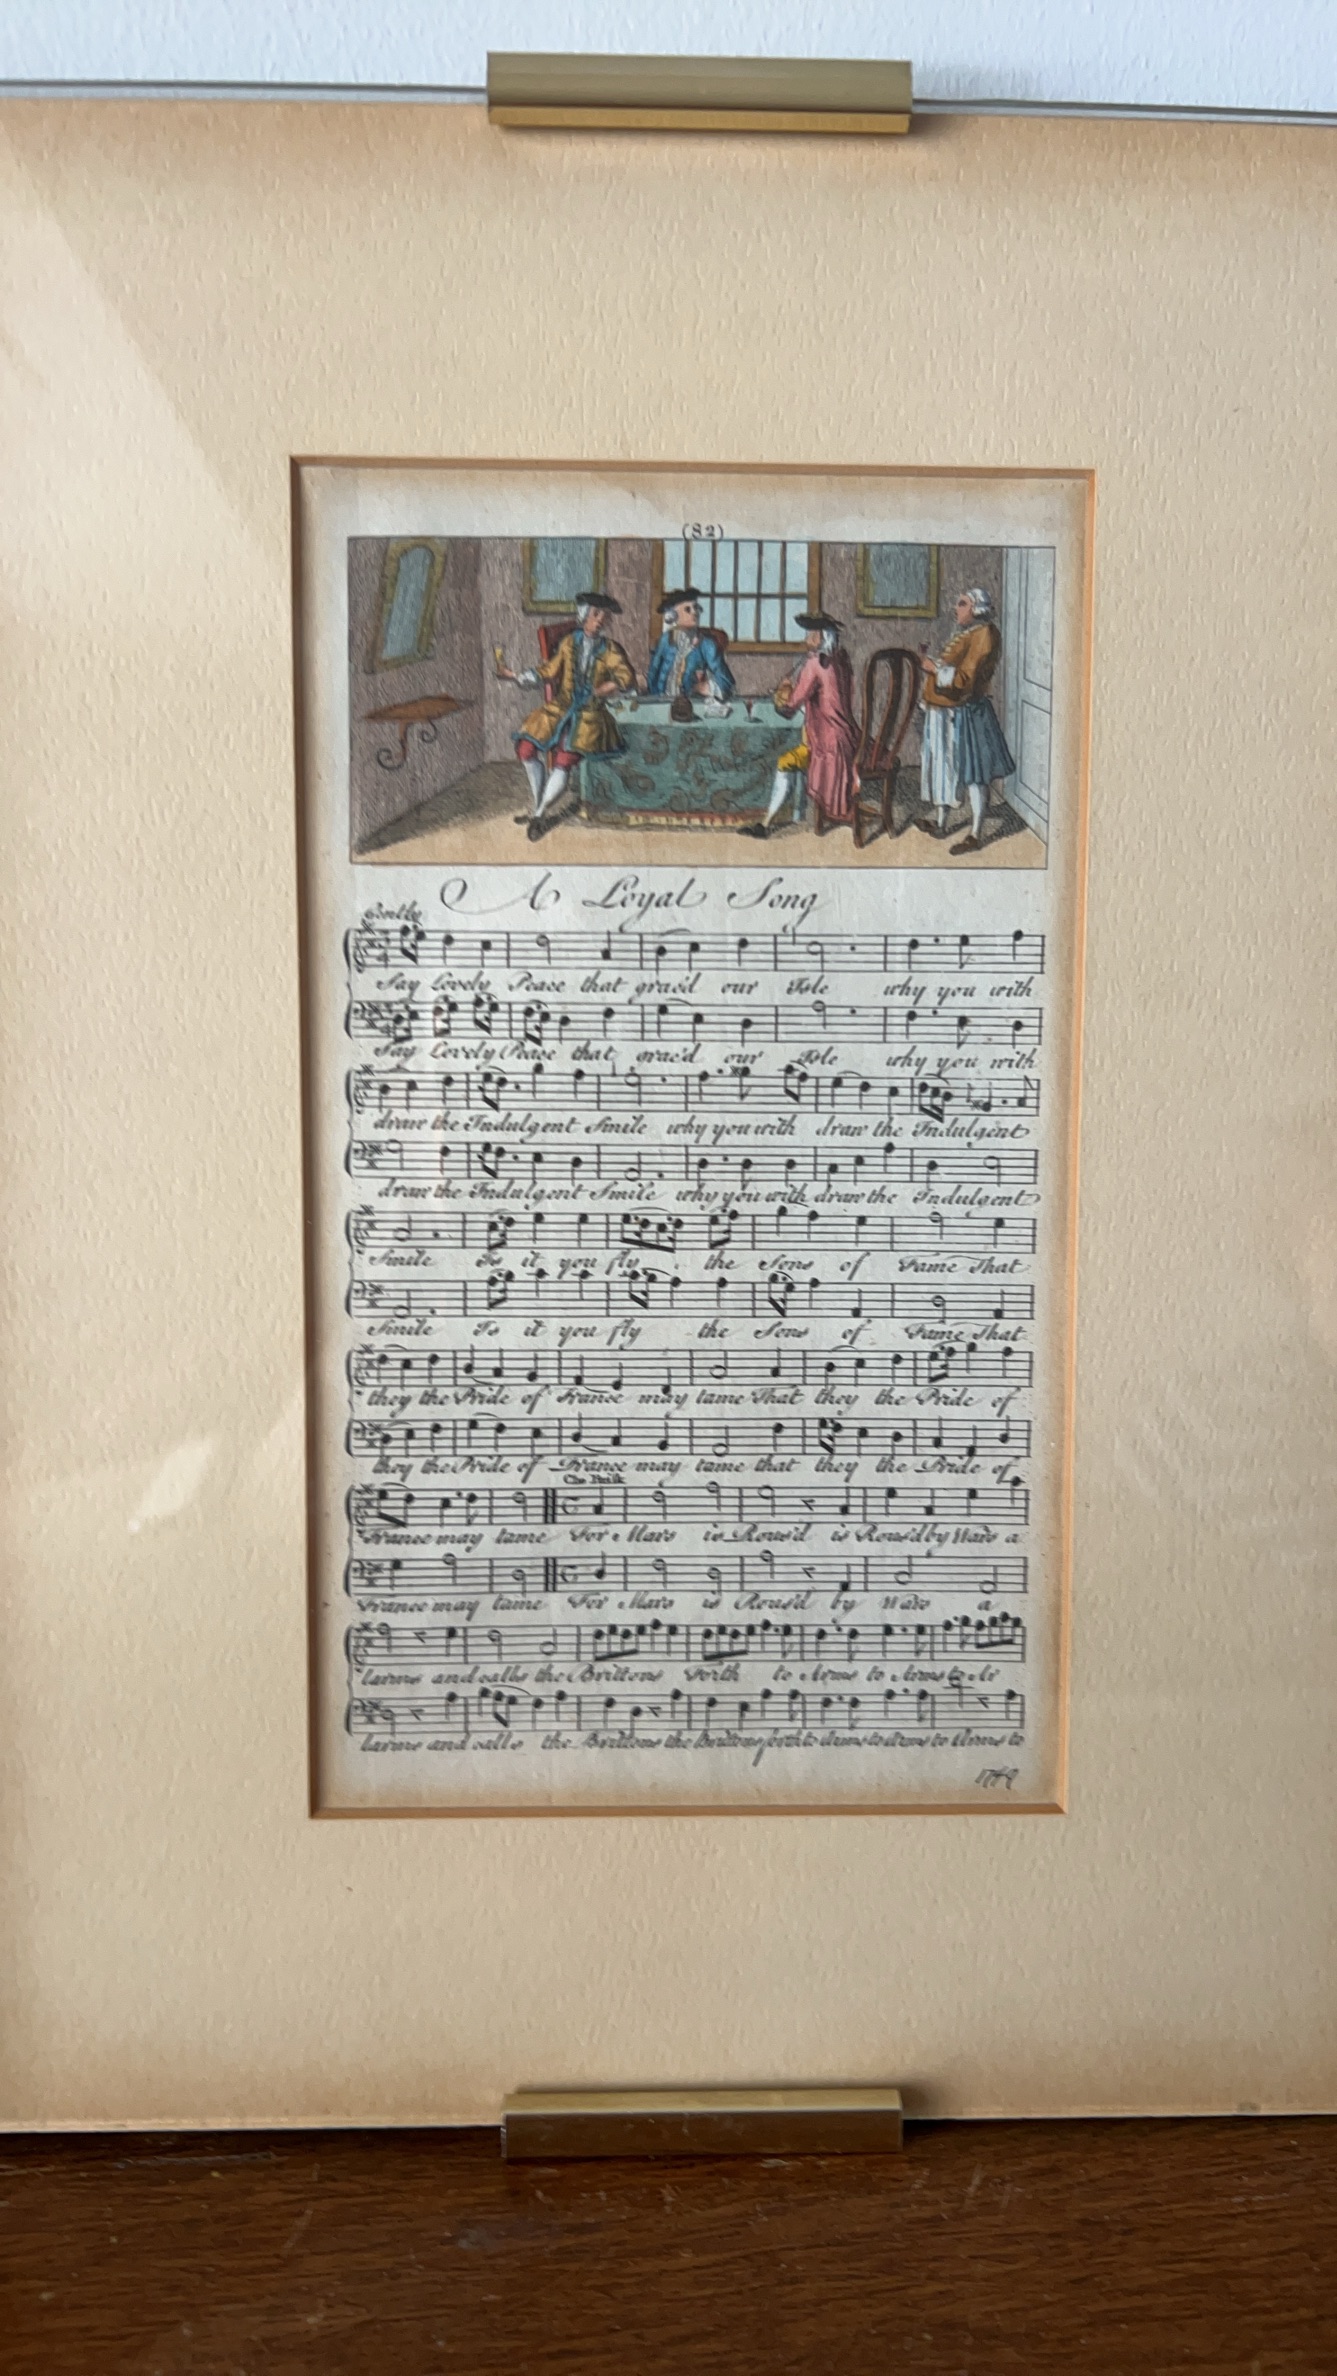 (82)
A Loyal Song
Gently
Say Lovely Peace that grac'd our Isle why you with
Say Lovely Peace that grac'd our Isle why you with
draw the Indulgent Smile why you with draw the Indulgent
draw the Indulgent Smile why you with draw the Indulgent
Smile Is it you fly the Sons of Fame That
Smile Is it you fly the Sons of Fame That
they the Pride of France may tame That they the Pride of
they the Pride of France may tame that they the Pride of
Cho Brisk
France may tame For Mars is Rous'd is Rous'd by Wars a
France may tame For Mars is Rous'd by Wars a
larms and calls the Brittons Forth to Arms to Arms to Ar
larms and calls the Brittons the Brittons forth to Arms to Arms to Arms to